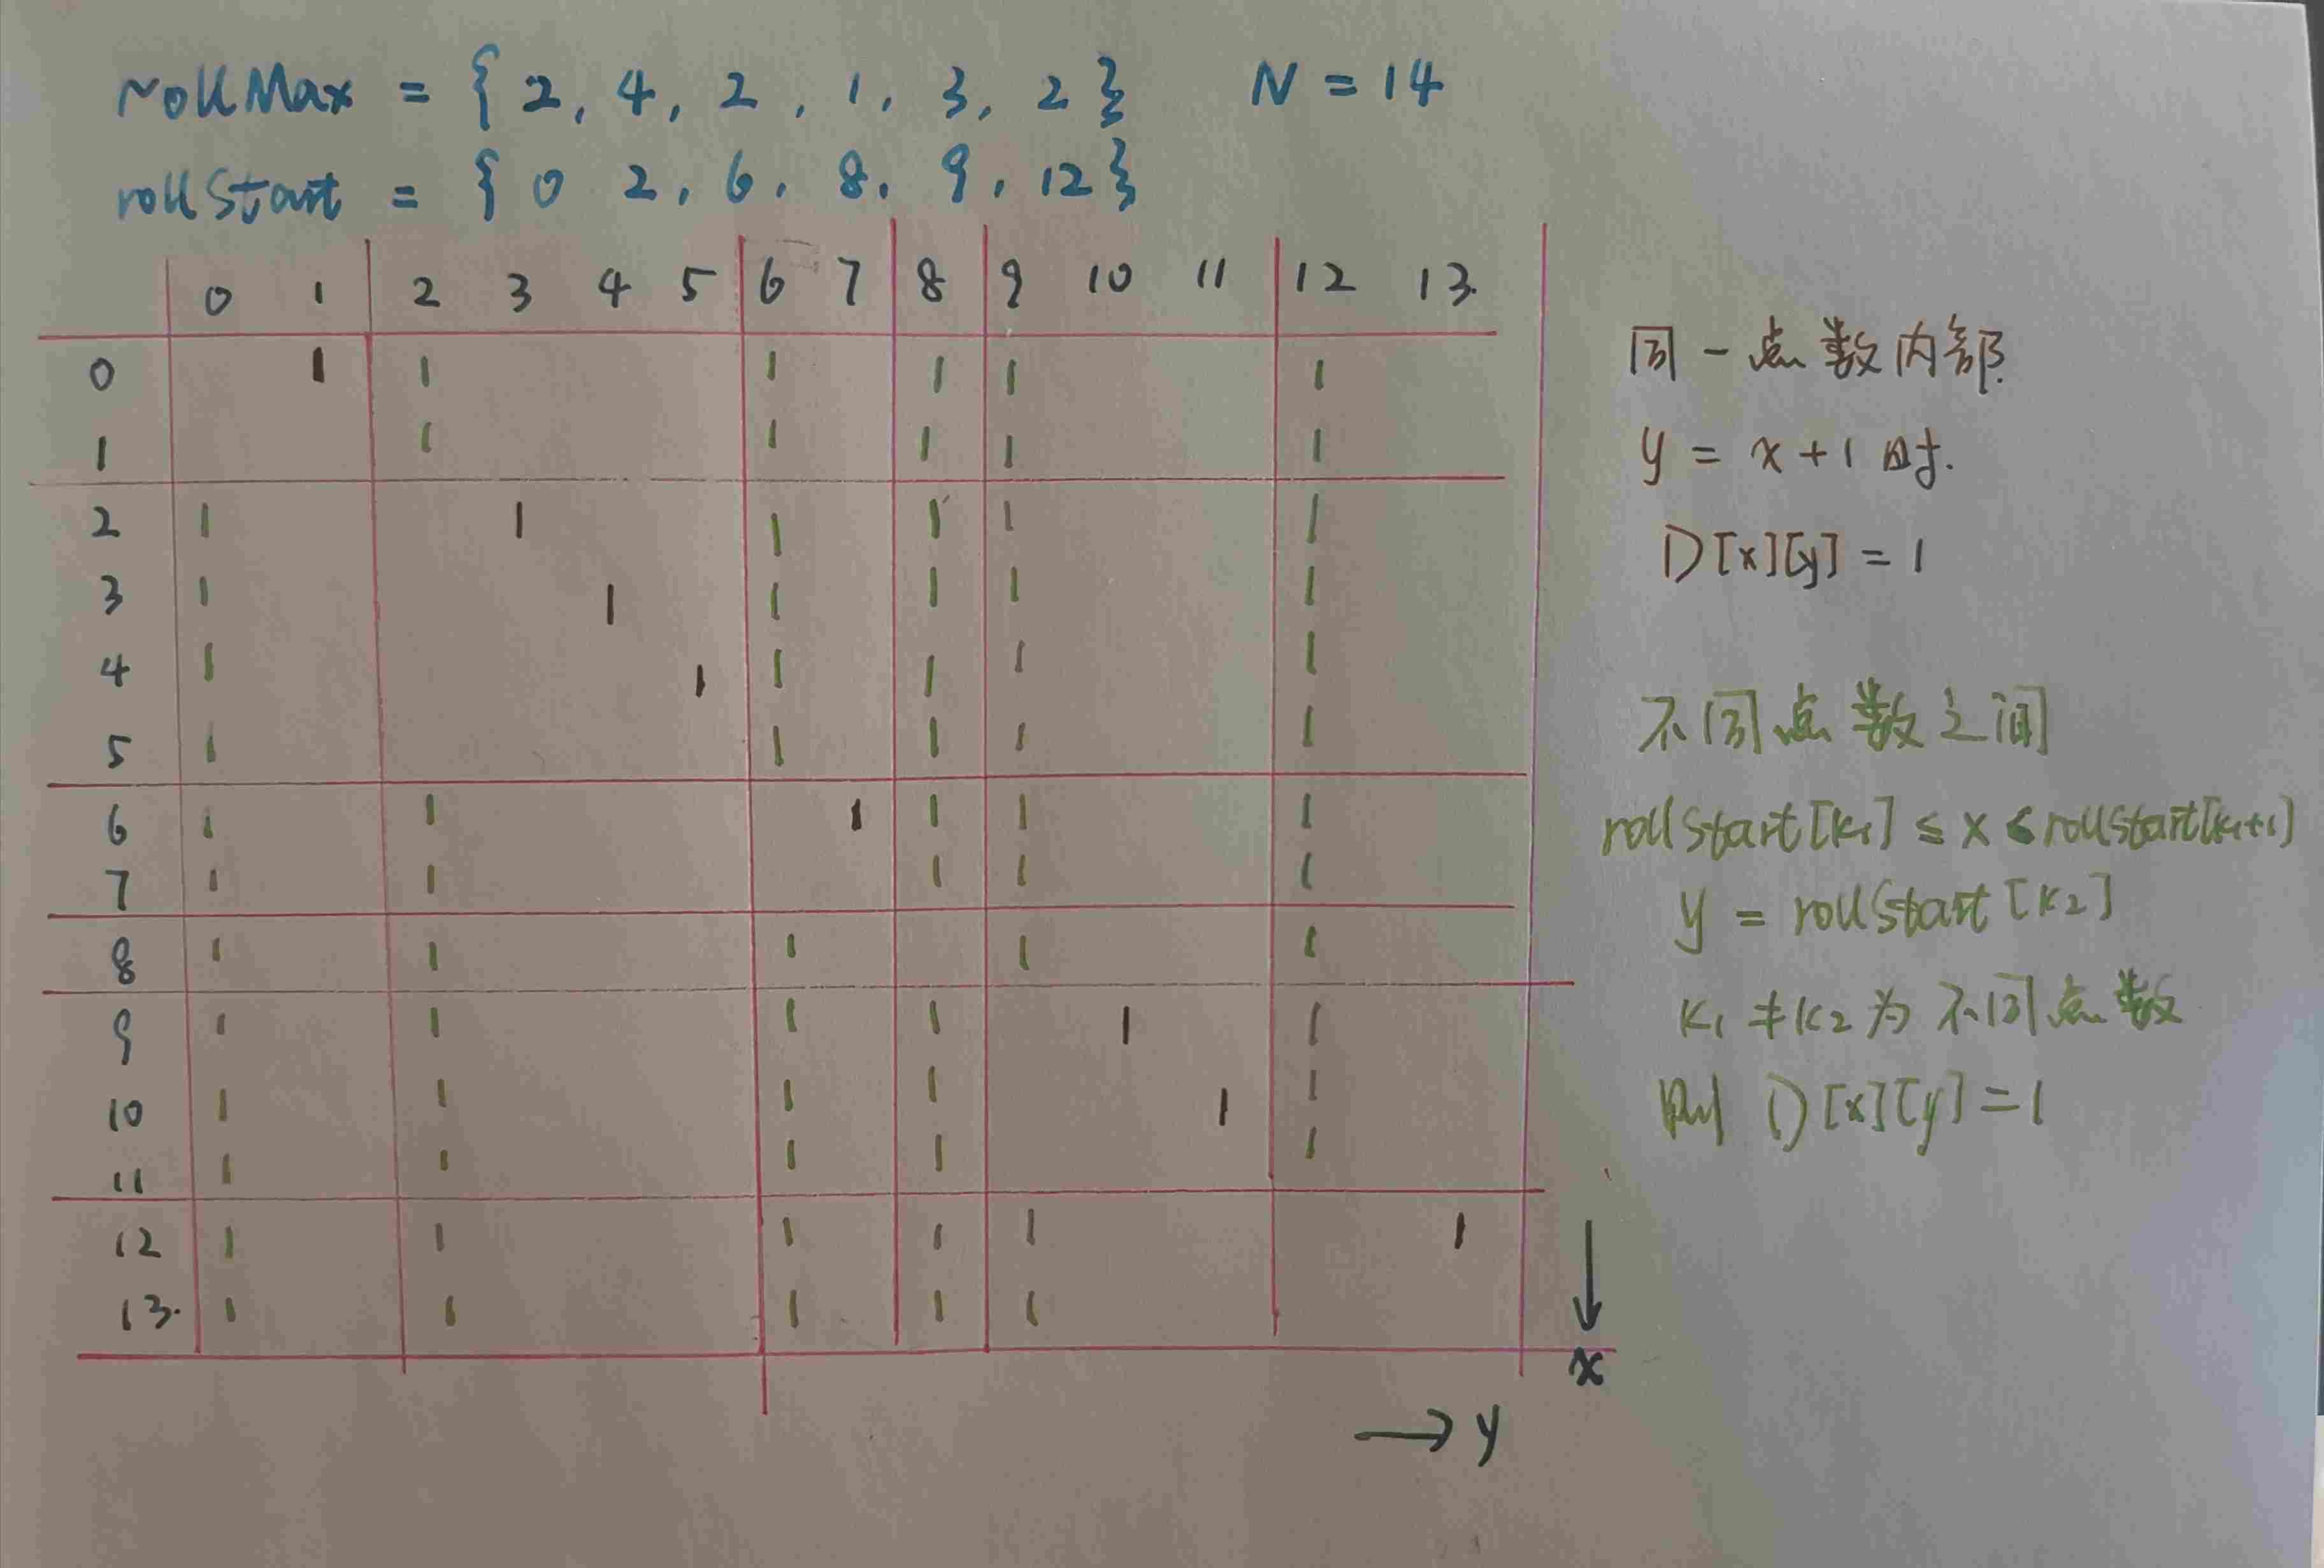 rollMax = { 2, 4, 2, 1, 3, 2 } N = 14
rollStart = { 0 2, 6, 8, 9, 12 }
0 1 2 3 4 5 6 7 8 9 10 11 12 13.
0 1 1 1 1 1 1
1 1 1 1 1 1
2 1 1 1 1 1 1
3 1 1 1 1 1 1
4 1 1 1 1 1 1
5 1 1 1 1 1
6 1 1 1 1 1 1
7 1 1 1 1 1
8 1 1 1 1 1
9 1 1 1 1 1 1
10 1 1 1 1 1 1
11 1 1 1 1 1
12 1 1 1 1 1 1
13. 1 1 1 1 1
x
→ y
同一点数内部.
y = x+1 时.
D[x][y] = 1
不同点数之间
rollStart[k1] ≤ x < rollStart[k1+1]
y = rollStart[k2]
k1 ≠ k2 为不同点数
则 D[x][y] = 1